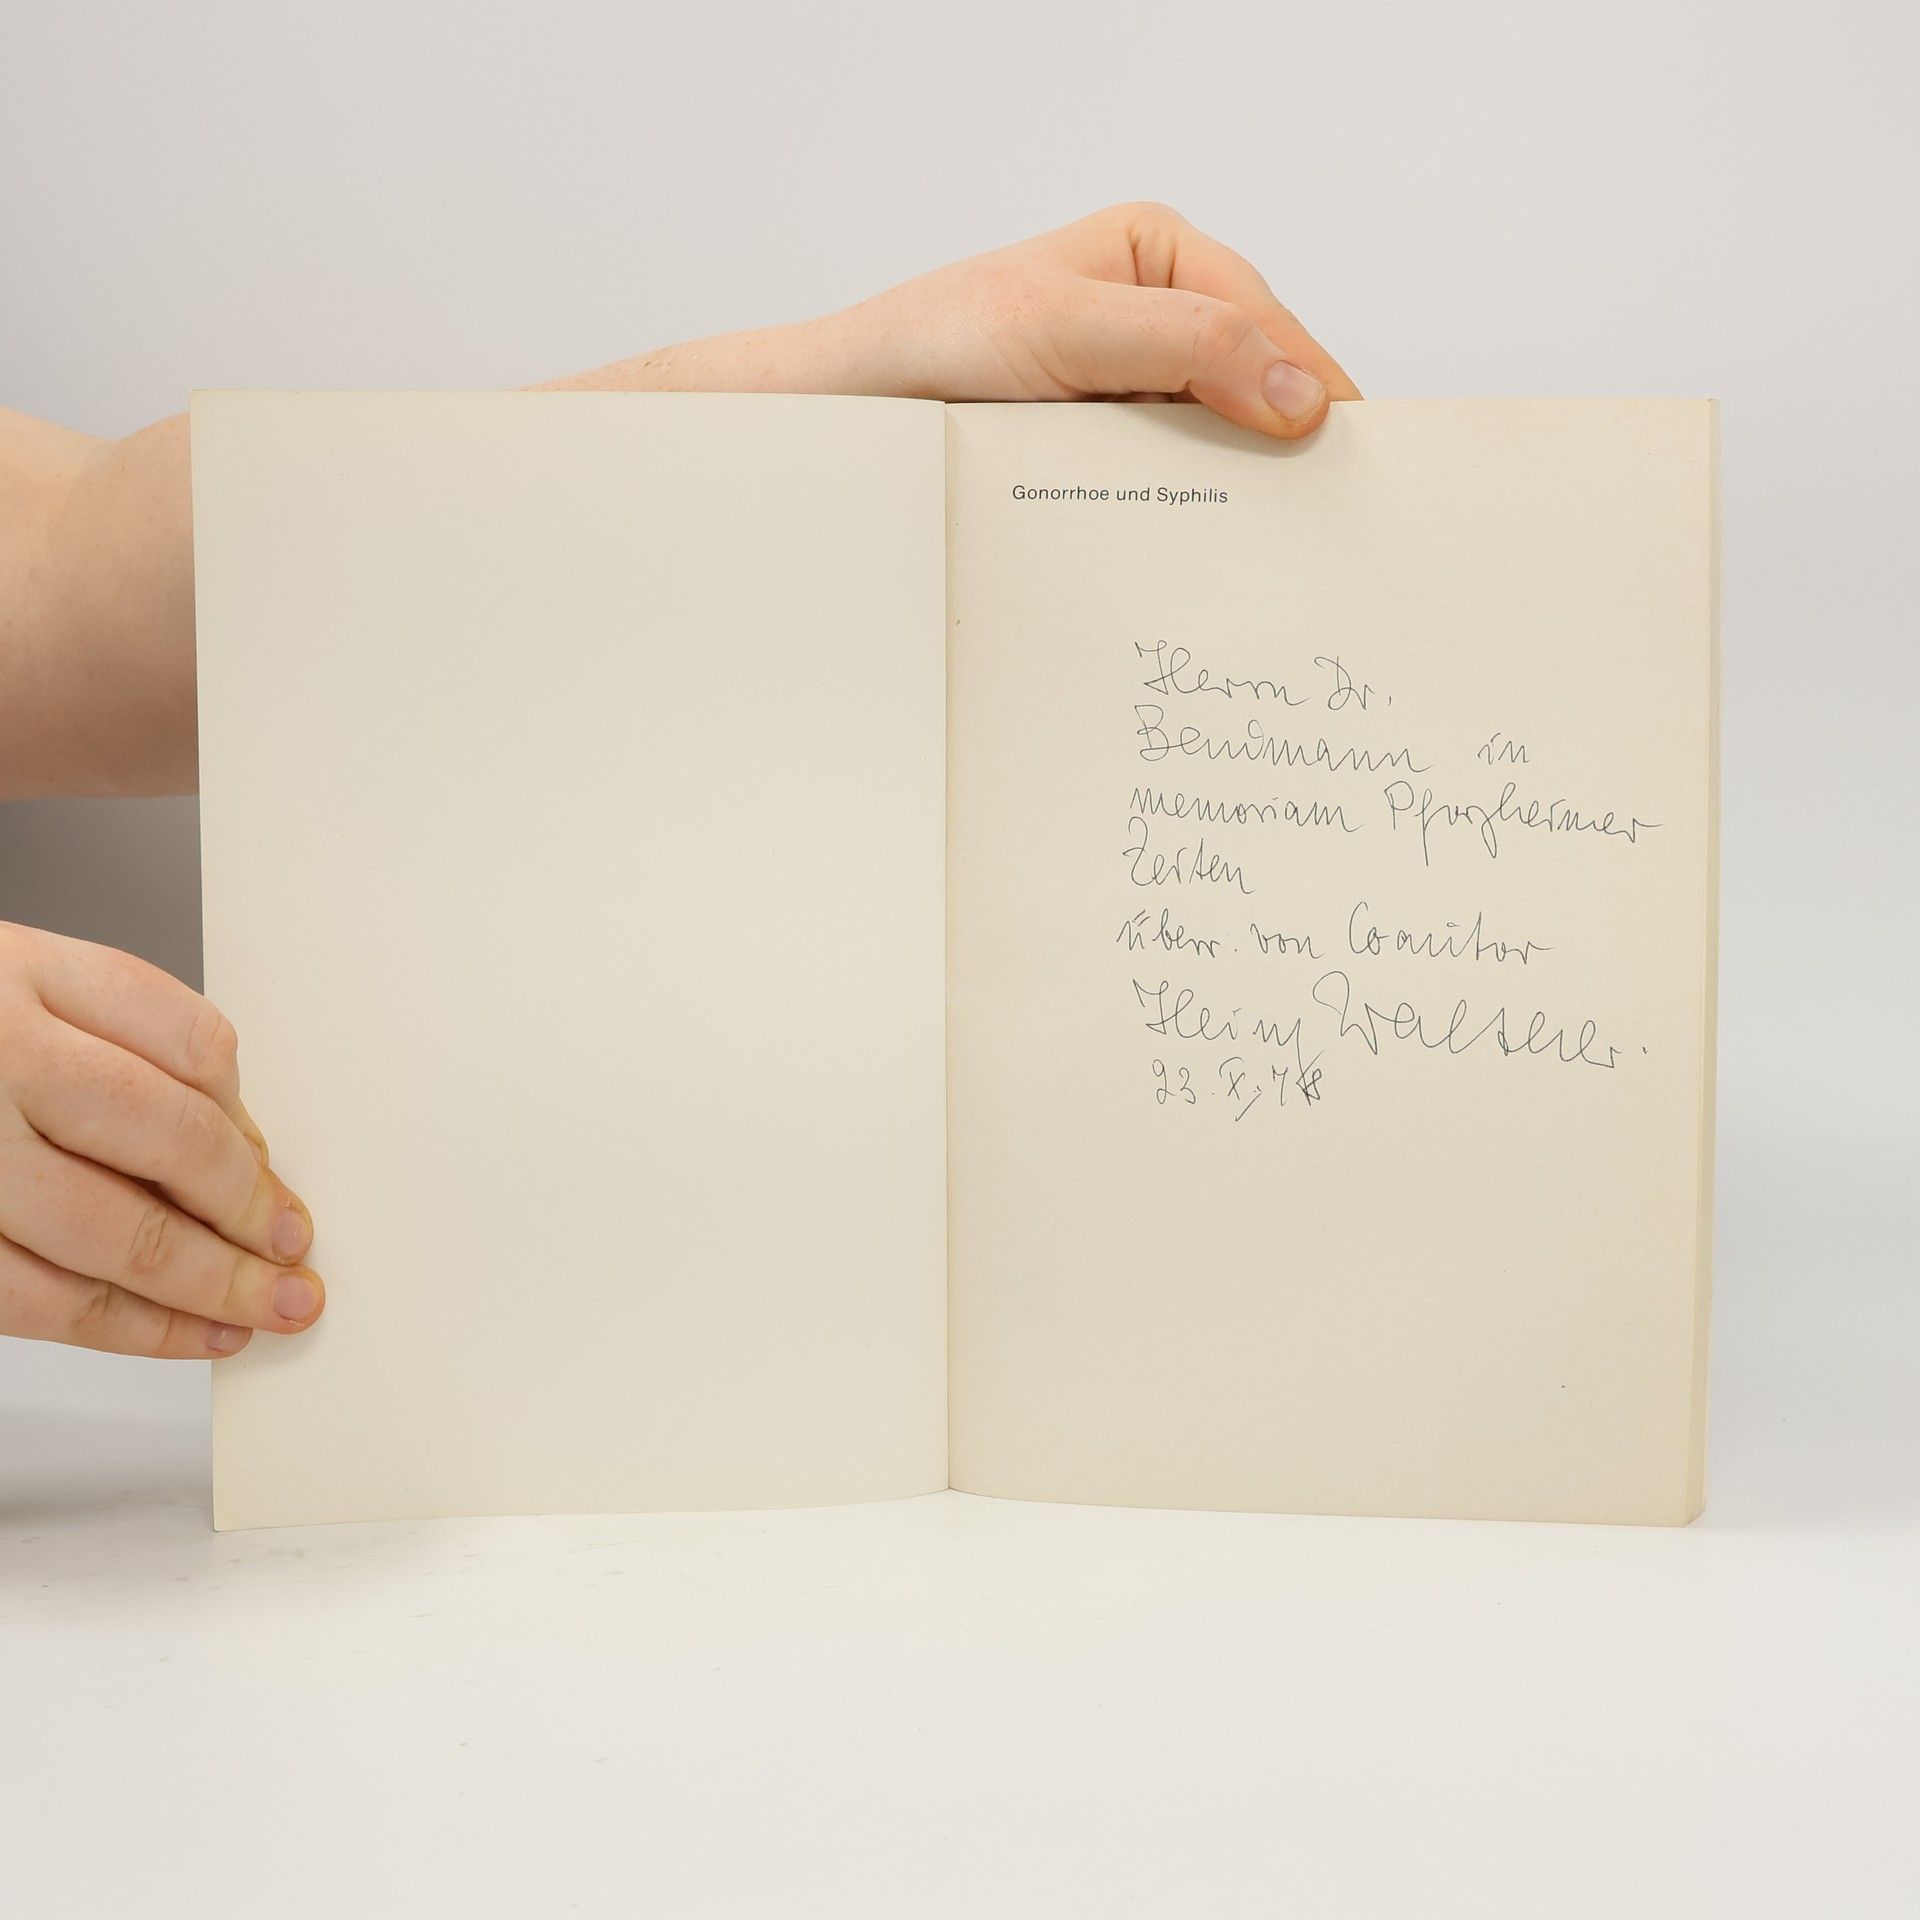 Gonorrhoe und Syphilis
Herrn Dr.
Bendmann in
memoriam Pforzheimer
Zeiten
überr. von Coautor
Heinz Walther.
23. X. 78